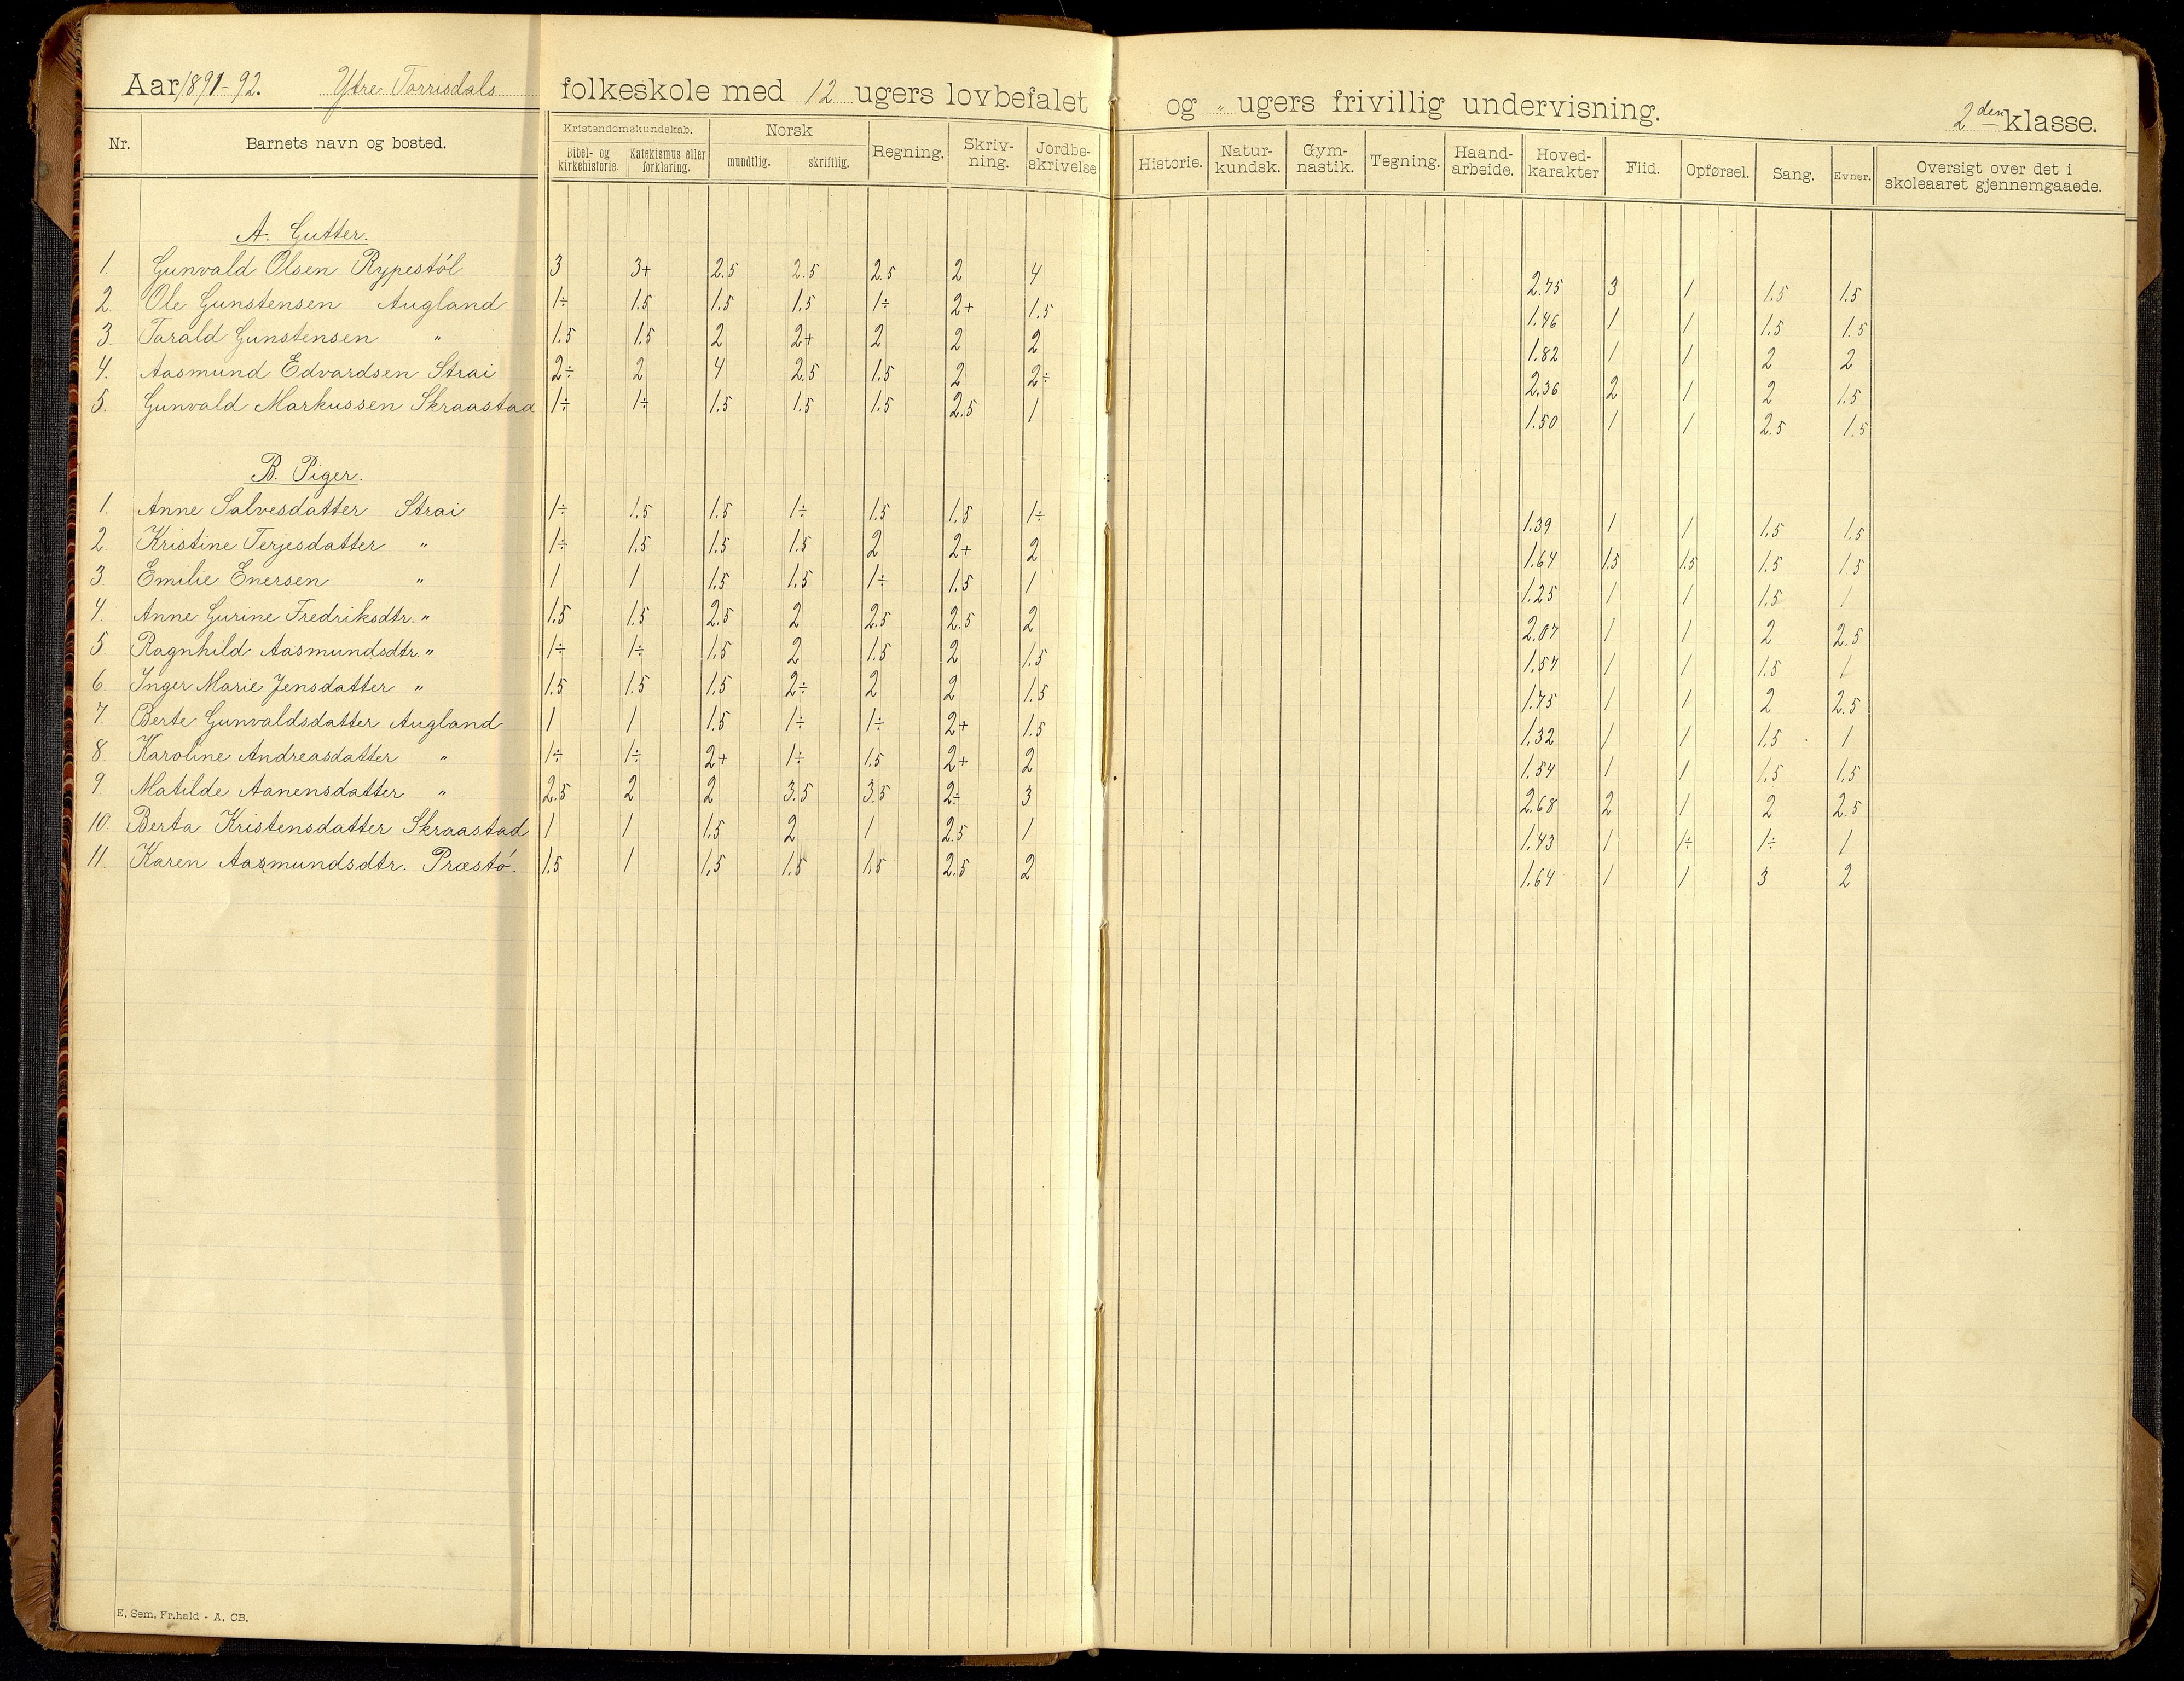 Aar 1891-92. Ytre Torrisdals folkeskole med 12 ugers lovbefalet og " ugers frivillig undervisning. 2den klasse.
Nr. Barnets navn og bosted. Kristendomskundskab. Bibel- og kirkehistorie. Katekismus eller forklaring. Norsk mundtlig. skriftlig. Regning. Skriv-ning. Jordbe-skrivelse Historie. Natur-kundsk. Gym-nastik. Tegning. Haand-arbeide. Hoved-karakter Flid. Opførsel. Sang. Evner. Oversigt over det i skoleaaret gjennemgaaede.
A. Gutter.
1. Gunvald Olsen Rypestöl 3 3+ 2.5 2.5 2.5 2 4 2.75 3 1 1.5 1.5
2. Ole Gunstensen Augland 1÷ 1.5 1.5 1.5 1÷ 2+ 1.5 1.46 1 1 1.5 1.5
3. Tarald Gunstensen " 1.5 1.5 2 2+ 2 2 2 1.82 1 1 2 2
4. Aasmund Edvardsen Strai 2÷ 2 4 2.5 1.5 2 2÷ 2.36 2 1 2 1.5
5. Gunvald Markussen Skraastad 1÷ 1÷ 1.5 1.5 1.5 2.5 1 1.50 1 1 2.5 1.5
B. Piger.
1. Anne Salvesdatter Strai 1÷ 1.5 1.5 1÷ 1.5 1.5 1÷ 1.39 1 1 1.5 1.5
2. Kristine Terjesdatter " 1÷ 1.5 1.5 1.5 2 2+ 2 1.64 1.5 1.5 1.5 1.5
3. Emilie Enersen " 1 1 1.5 1.5 1÷ 1.5 1 1.25 1 1 1.5 1
4. Anne Gurine Fredriksdtr. " 1.5 1.5 2.5 2 2.5 2.5 2 2.07 1 1 2 2.5
5. Ragnhild Aasmundsdtr. " 1÷ 1÷ 1.5 2 1.5 2 1.5 1.57 1 1 1.5 1
6. Inger Marie Jensdatter " 1.5 1.5 1.5 2÷ 2 2 1.5 1.75 1 1 2 2.5
7. Berte Gunvaldsdatter Augland 1 1 1.5 1÷ 1÷ 2+ 1.5 1.32 1 1 1.5 1
8. Karoline Andreasdatter " 1÷ 1÷ 2+ 1÷ 1.5 2+ 2 1.54 1 1 1.5 1.5
9. Matilde Aanensdatter " 2.5 2 2 3.5 3.5 2÷ 3 2.68 2 1 2 2.5
10. Berta Kristensdatter Skraastad 1 1 1.5 2 1 2.5 1 1.43 1 1÷ 1÷ 1
11. Karen Aasmundsdtr. Præstö. 1.5 1 1.5 1.5 1.5 2.5 2 1.64 1 1 3 2
E. Sem, Fr.hald - A. CB.